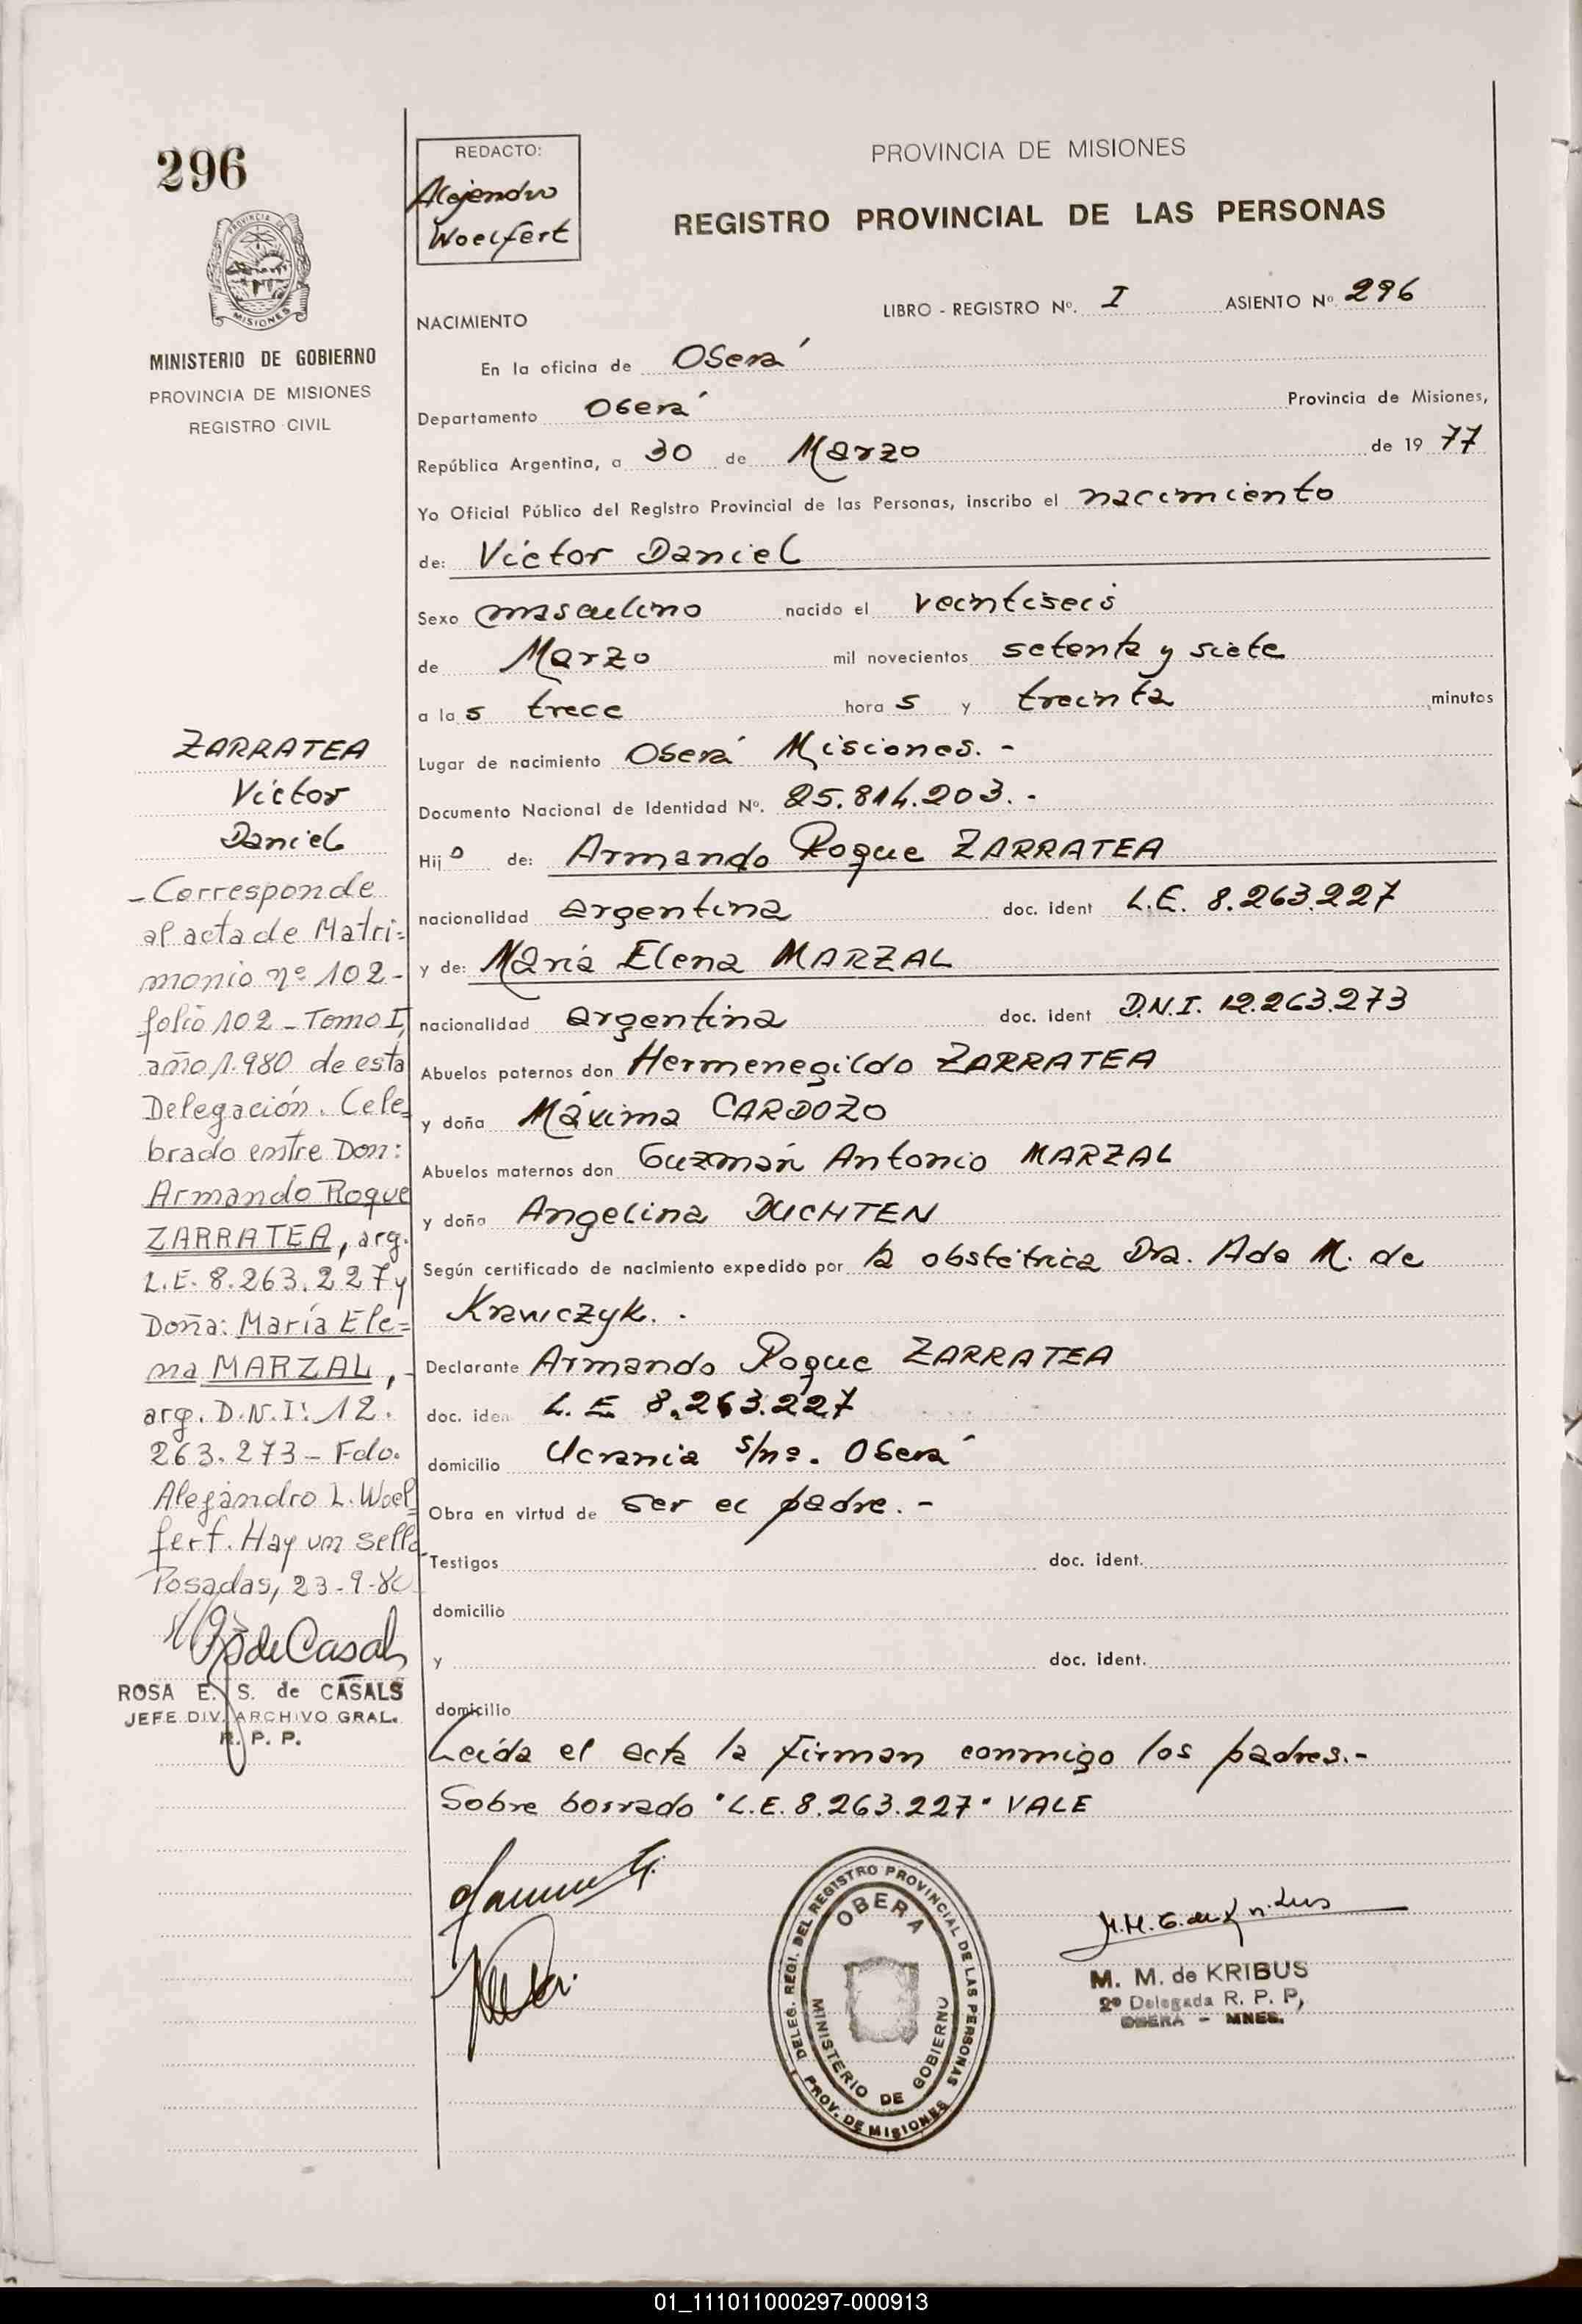 296
PROVINCIA DE MISIONES
MINISTERIO DE GOBIERNO
PROVINCIA DE MISIONES
REGISTRO CIVIL
ZARRATEA
Victor
Daniel
- Corresponde
al acta de Matri=
monio nº 102 -
folio 102 - Tomo I,
año 1.980 de esta
Delegación. Cele=
brado entre Don:
Armando Roque
ZARRATEA, arg.
L.E. 8.263.227 y
Doña: María Ele=
na MARZAL, -
arg. D.N.I: 12.
263.273 - Fdo.
Alejandro L. Woel=
fert. Hay un sello
Posadas, 23-9-80
de Casals
ROSA E. S. de CASALS
JEFE DIV. ARCHIVO GRAL.
R. P. P.
REDACTO:
Alejandro
Woelfert
PROVINCIA DE MISIONES
REGISTRO PROVINCIAL DE LAS PERSONAS
LIBRO - REGISTRO Nº. I ASIENTO Nº 296
NACIMIENTO
En la oficina de Oberá
Departamento Oberá Provincia de Misiones,
República Argentina, a 30 de Marzo de 19 77
Yo Oficial Público del Registro Provincial de las Personas, inscribo el nacimiento
de: Victor Daniel
Sexo masculino nacido el veintiseis
de Marzo mil novecientos setenta y siete
a las trece horas y treinta minutos
Lugar de nacimiento Oberá Misiones. -
Documento Nacional de Identidad Nº. 25.814.203. -
Hijo de: Armando Roque ZARRATEA
nacionalidad argentina doc. ident L.E. 8.263.227
y de: María Elena MARZAL
nacionalidad argentina doc. ident D.N.I. 12.263.273
Abuelos paternos don Hermenegildo ZARRATEA
y doña Máxima CARDOZO
Abuelos maternos don Guzmán Antonio MARZAL
y doña Angelina DUCHTEN
Según certificado de nacimiento expedido por la obstétrica Dra. Ada M. de
Krawczyk. .
Declarante Armando Roque ZARRATEA
doc. iden L. E 8.263.227
domicilio Ucrania s/nº. Oberá
Obra en virtud de ser el padre. -
Testigos doc. ident.
domicilio
y doc. ident.
domicilio
Leída el acta la firman conmigo los padres.-
Sobre borrado "L.E. 8.263.227" VALE
DELEG. REGI. DEL REGISTRO PROVINCIAL DE LAS PERSONAS
OBERA
MINISTERIO DE GOBIERNO
PROV. DE MISIONES
M. M. de KRIBUS
2º Delegada R. P. P,
OBERA - MNES.
01_111011000297-000913